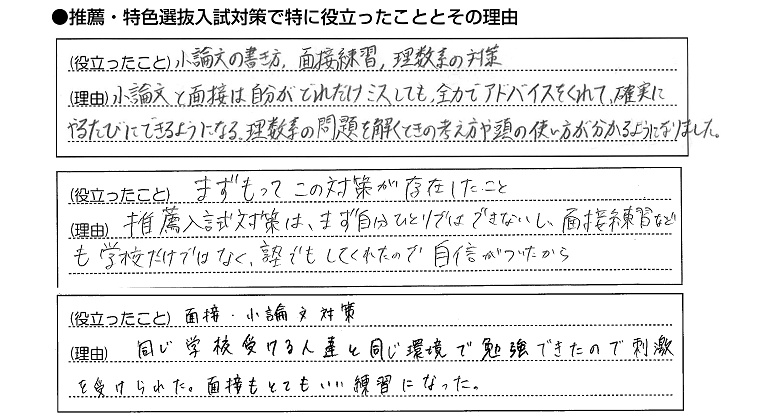 ●推薦・特色選抜入試対策で特に役立ったこととその理由
(役立ったこと) 小論文の書き方, 面接練習, 理数系の対策
(理由) 小論文と面接は自分がどれだけミスしても、全力でアドバイスをくれて、確実に
やるたびにできるようになる。理数系の問題を解くときの考え方や頭の使い方が分かるようになりました。
(役立ったこと) まずもってこの対策が存在したこと
(理由) 推薦入試対策は、まず自分ひとりではできないし、面接練習なども
学校だけではなく、塾でもしてくれたので自信がついたから
(役立ったこと) 面接・小論文対策
(理由) 同じ学校受ける人達と同じ環境で勉強できたので刺激
を受けられた。面接もとてもいい練習になった。